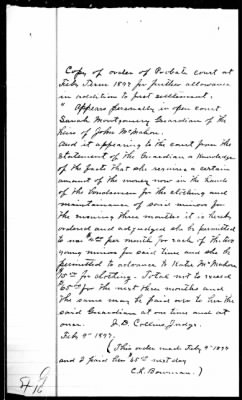 Copy of order of Probate court at
Feby Term 1897 for further allowance
in addition to first settlement.
" Appears personally in open court
Sarah Montgomery Guardian of the
heirs of John McMahon.
And it appearing to the court from the
statement of the Guardian & knowledge
of the facts that she requires a certain
amount of the money now in the hands
of the bondsmen for the clothing and
maintainance of said minors for
the ensuing three months it is hereby
ordered and adjudged she be permitted
to per month for each of the two
young minors for said time and she be
permitted to advance to Katie McMahon
for clothing. Total not to exceed
$65 for the next three months and
the same may be paid over to her the
said Guardian at one time and at
once. J. D. Collins, Judge.
Feby 9th 1897.
(This order made Feby 9th 1897
and I paid her $65 next day
C. R. Bowman.)